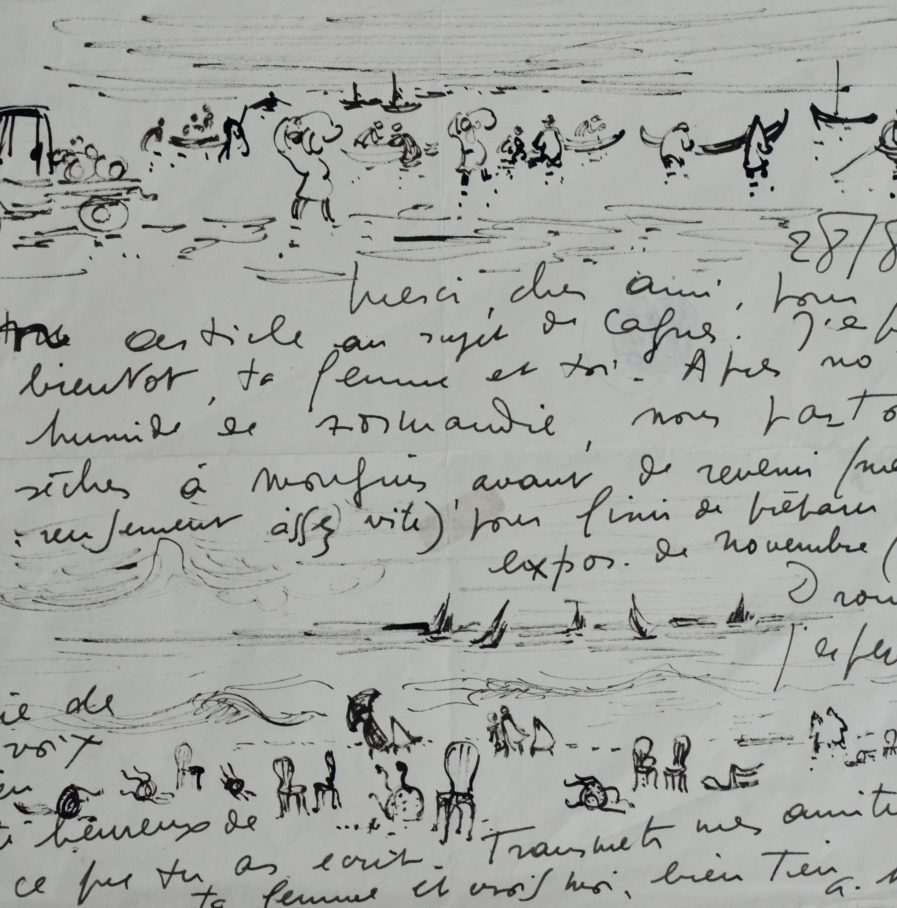 28/8
Merci, cher ami, pour
article au sujet de Cagnes. J'e
bientôt, ta femme et toi. Après no
humide de Normandie, nous parto
sécher à Mougins avant de revenir (
reusement assez vite) pour finir de
expos. de novembre (
Drou
j'espe
ie de
voix
en
heureux de
ce que tu as écrit. Transmets mes amiti
ta femme et crois moi, bien Tien